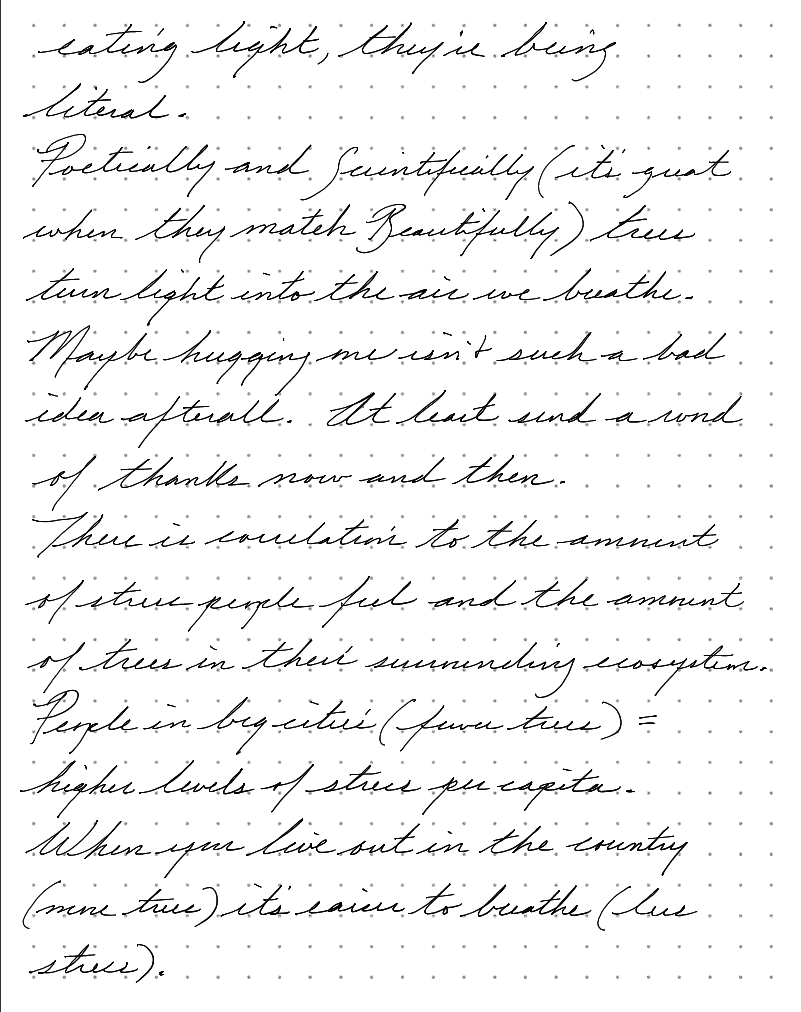 eating light, they're being
literal.
Poetically and Scientifically (it's great
when they match Beautifully) trees
turn light into the air we breathe.
Maybe hugging me isn't such a bad
idea afterall. At least send a word
of thanks now and then.
There is correlation to the amount
of stress people feel and the amount
of trees in their surrounding ecosystem.
People in big cities (fewer trees) =
higher levels of stress per capita.
When you live out in the country
(more trees) it's easier to breathe (less
stress).